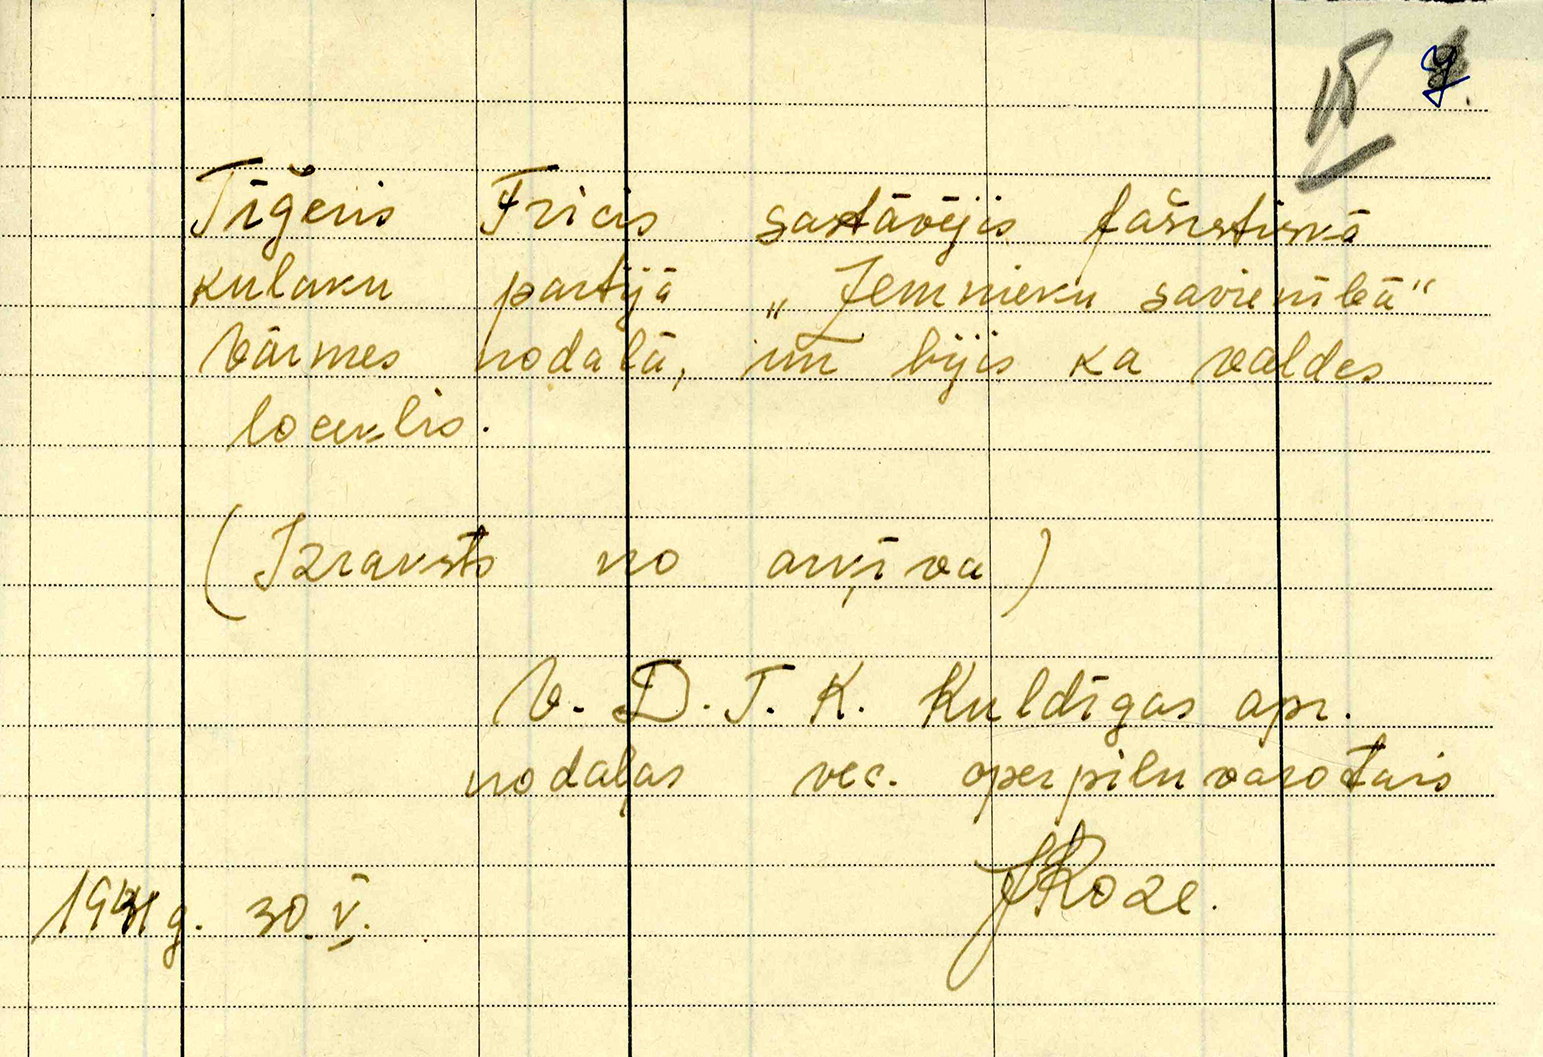 7.
Tīģeris Fricis sastāvējis fašistiskā
kulaku partijā „Zemnieku savienībā“
Vārmes nodaļā, un bijis ka valdes
loceklis.
(Izraksts no arķīva)
V. D. T. K. Kuldīgas apr.
nodaļas vec. operpilnvarotais
JRoze.
1941 g. 30. V.